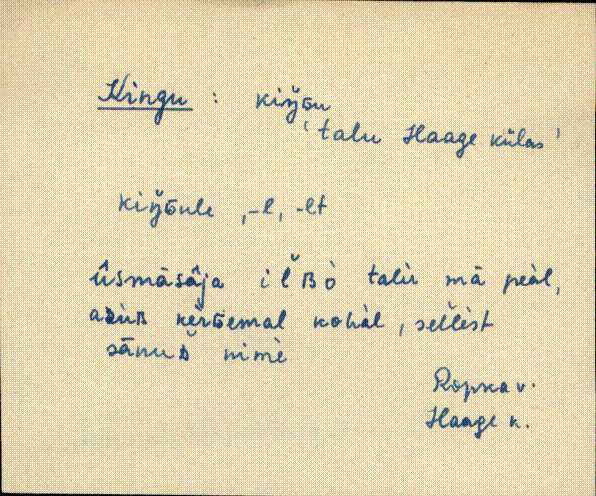 Kingu : kiŋ̆Gu
'talu Haage külas'
kiŋ̆Gule, -l, -lt
ûsmāsâja il̆Bò talù mā peàl,
asùB kèr̆Gemal kohàl, sel̆lèst
sānuD nimè
Ropka v.
Haage k.